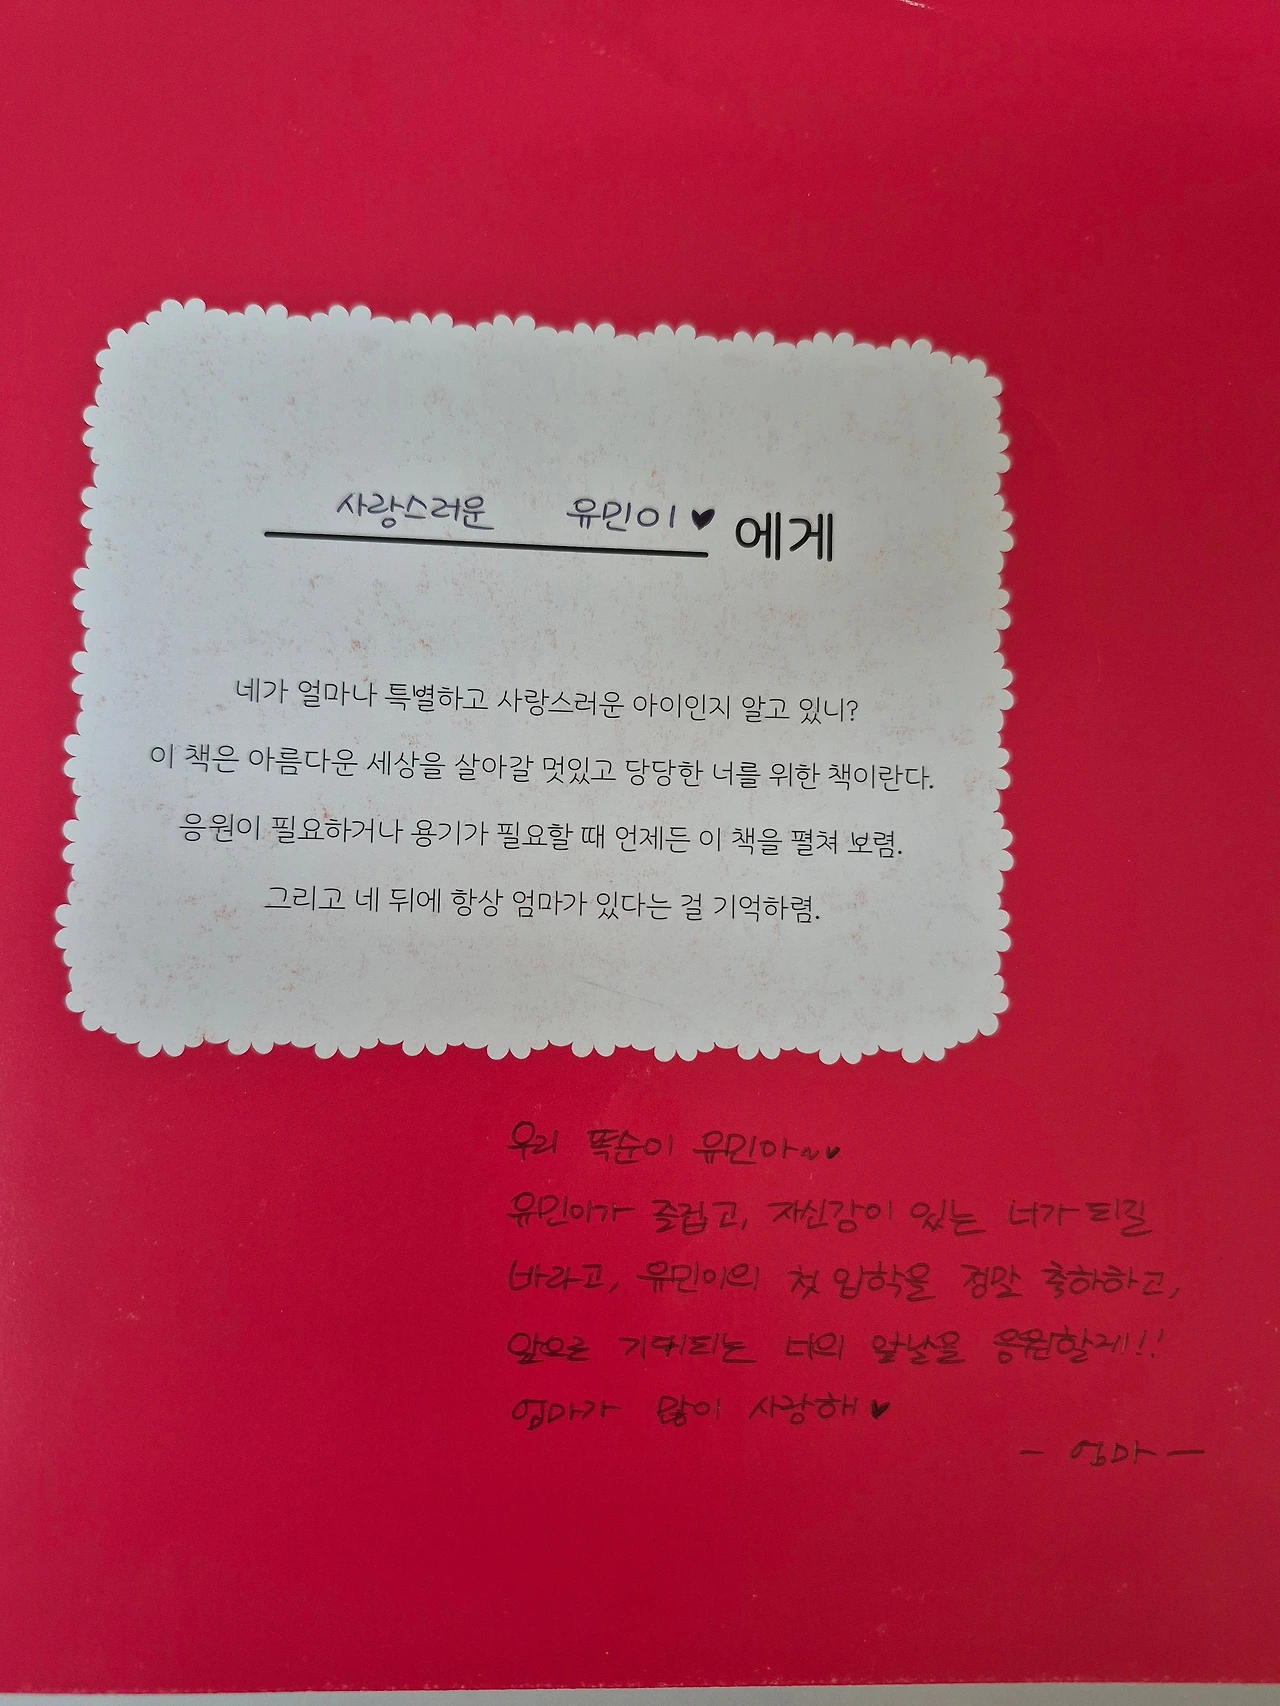 사랑스러운 유민이♥ 에게
네가 얼마나 특별하고 사랑스러운 아이인지 알고 있니?
이 책은 아름다운 세상을 살아갈 멋있고 당당한 너를 위한 책이란다.
응원이 필요하거나 용기가 필요할 때 언제든 이 책을 펼쳐 보렴.
그리고 네 뒤에 항상 엄마가 있다는 걸 기억하렴.
우리 똑순이 유민아~♥
유민이가 즐겁고, 자신감이 있는 너가 되길
바라고, 유민이의 첫 입학을 정말 축하하고,
앞으로 기대되는 너의 앞날을 응원할게!!
엄마가 많이 사랑해♥
- 엄마 -